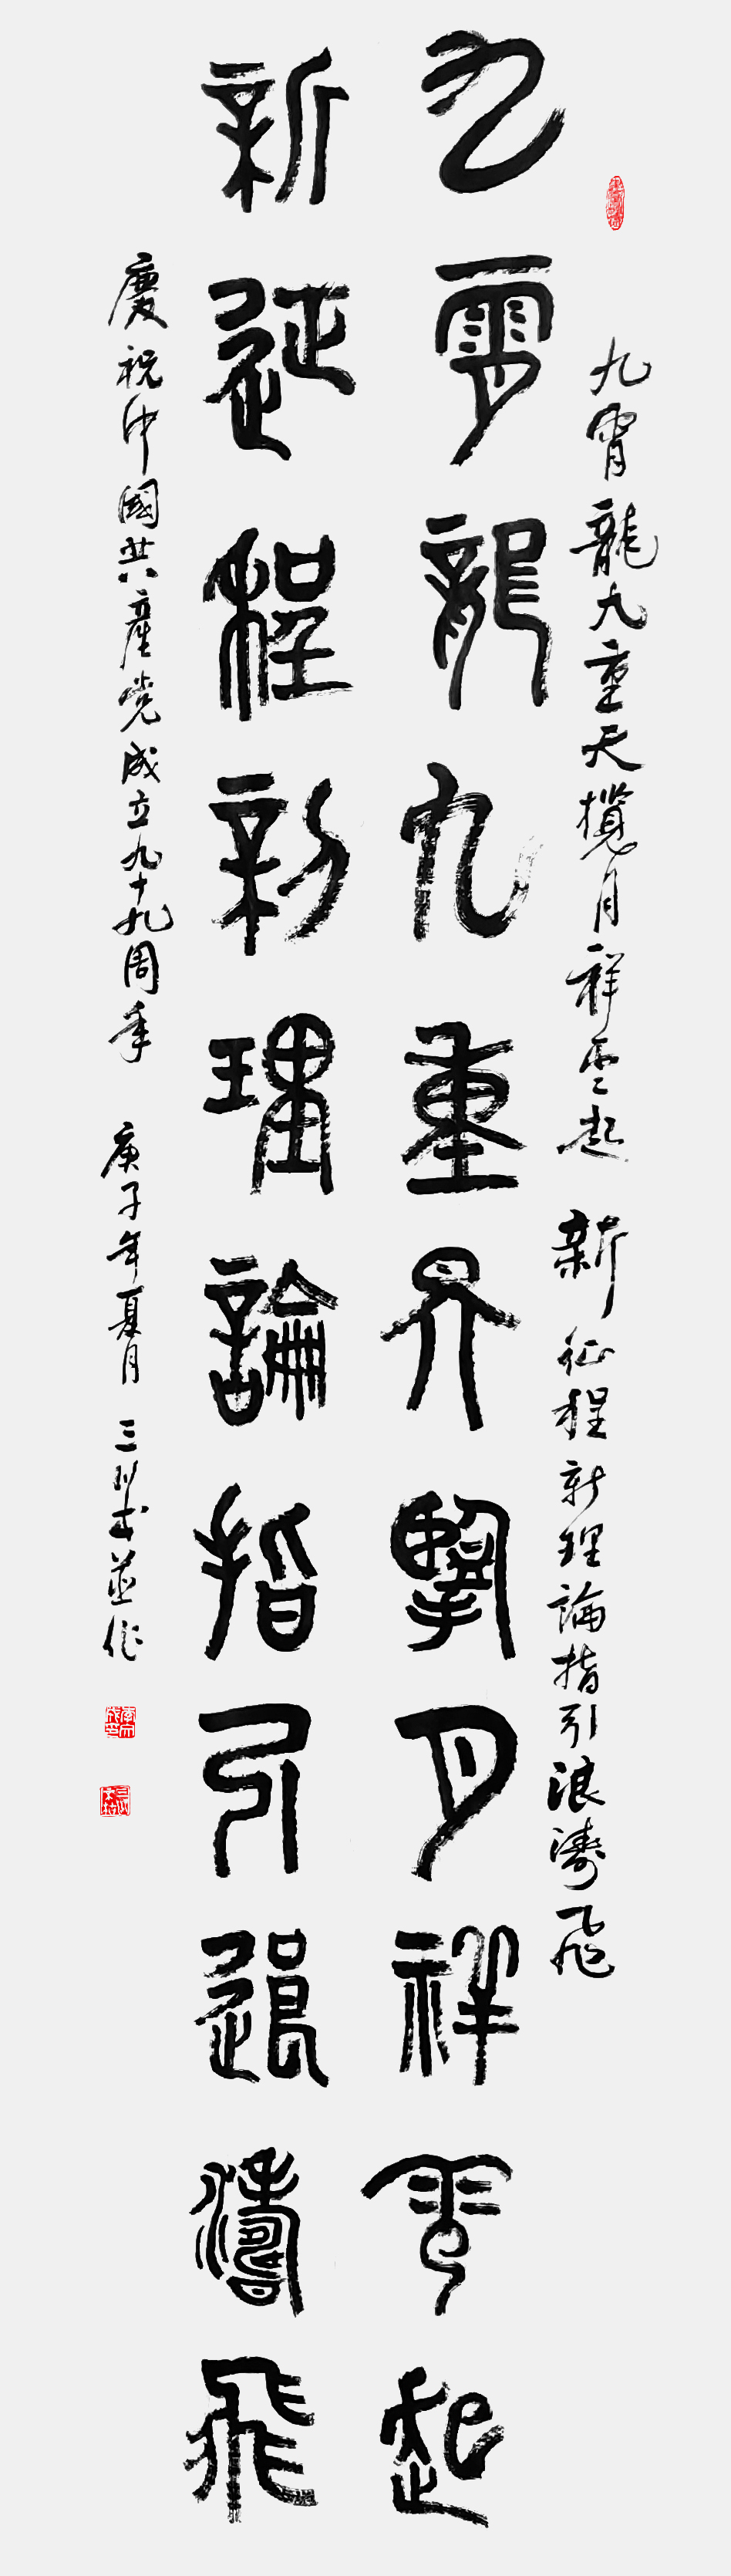 九霄龍九重天攬月祥雲起 新征程新理論指引浪濤飛
九霄龍九重天攬月祥雲起
新征程新理論指引浪濤飛
慶祝中國共產党成立九十九周年 庚子年夏月 三川 並作